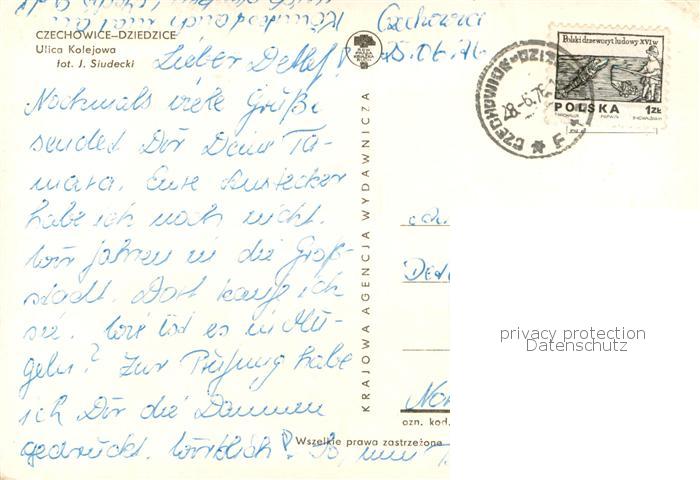 Czechowice
25.06.76
CZECHOWICE-DZIEDZICE
Ulica Kolejowa
fot. J. Siudecki
Lieber Detlef!
Nochmals viele Grüße
sendet Dir Deine Ta-
mara. Eure Anstecker
habe ich noch nicht.
Wir fahren in die Groß-
stadt. Dort kaufe ich
sie. Wie ist es in Mü-
geln? Zur Prüfung habe
ich Dir die Daumen
gedrückt. Wirklich! So, nun
KRAJOWA AGENCJA WYDAWNICZA
Wszelkie prawa zastrzeżone
Polski drzeworyt ludowy XVI w.
POLSKA 1 ZŁ
CZECHOWICE-DZIE
28-6.76
F
ozn. kod.
privacy protection
Datenschutz